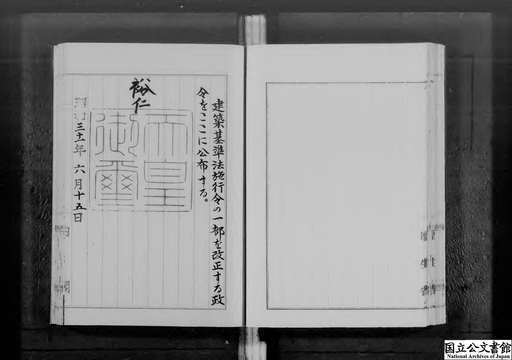 建築基準法施行令の一部を改正する政
令をここに公布する。
裕仁
天皇
御璽
三十一年六月十五日
国立公文書館
National Archives of Japan